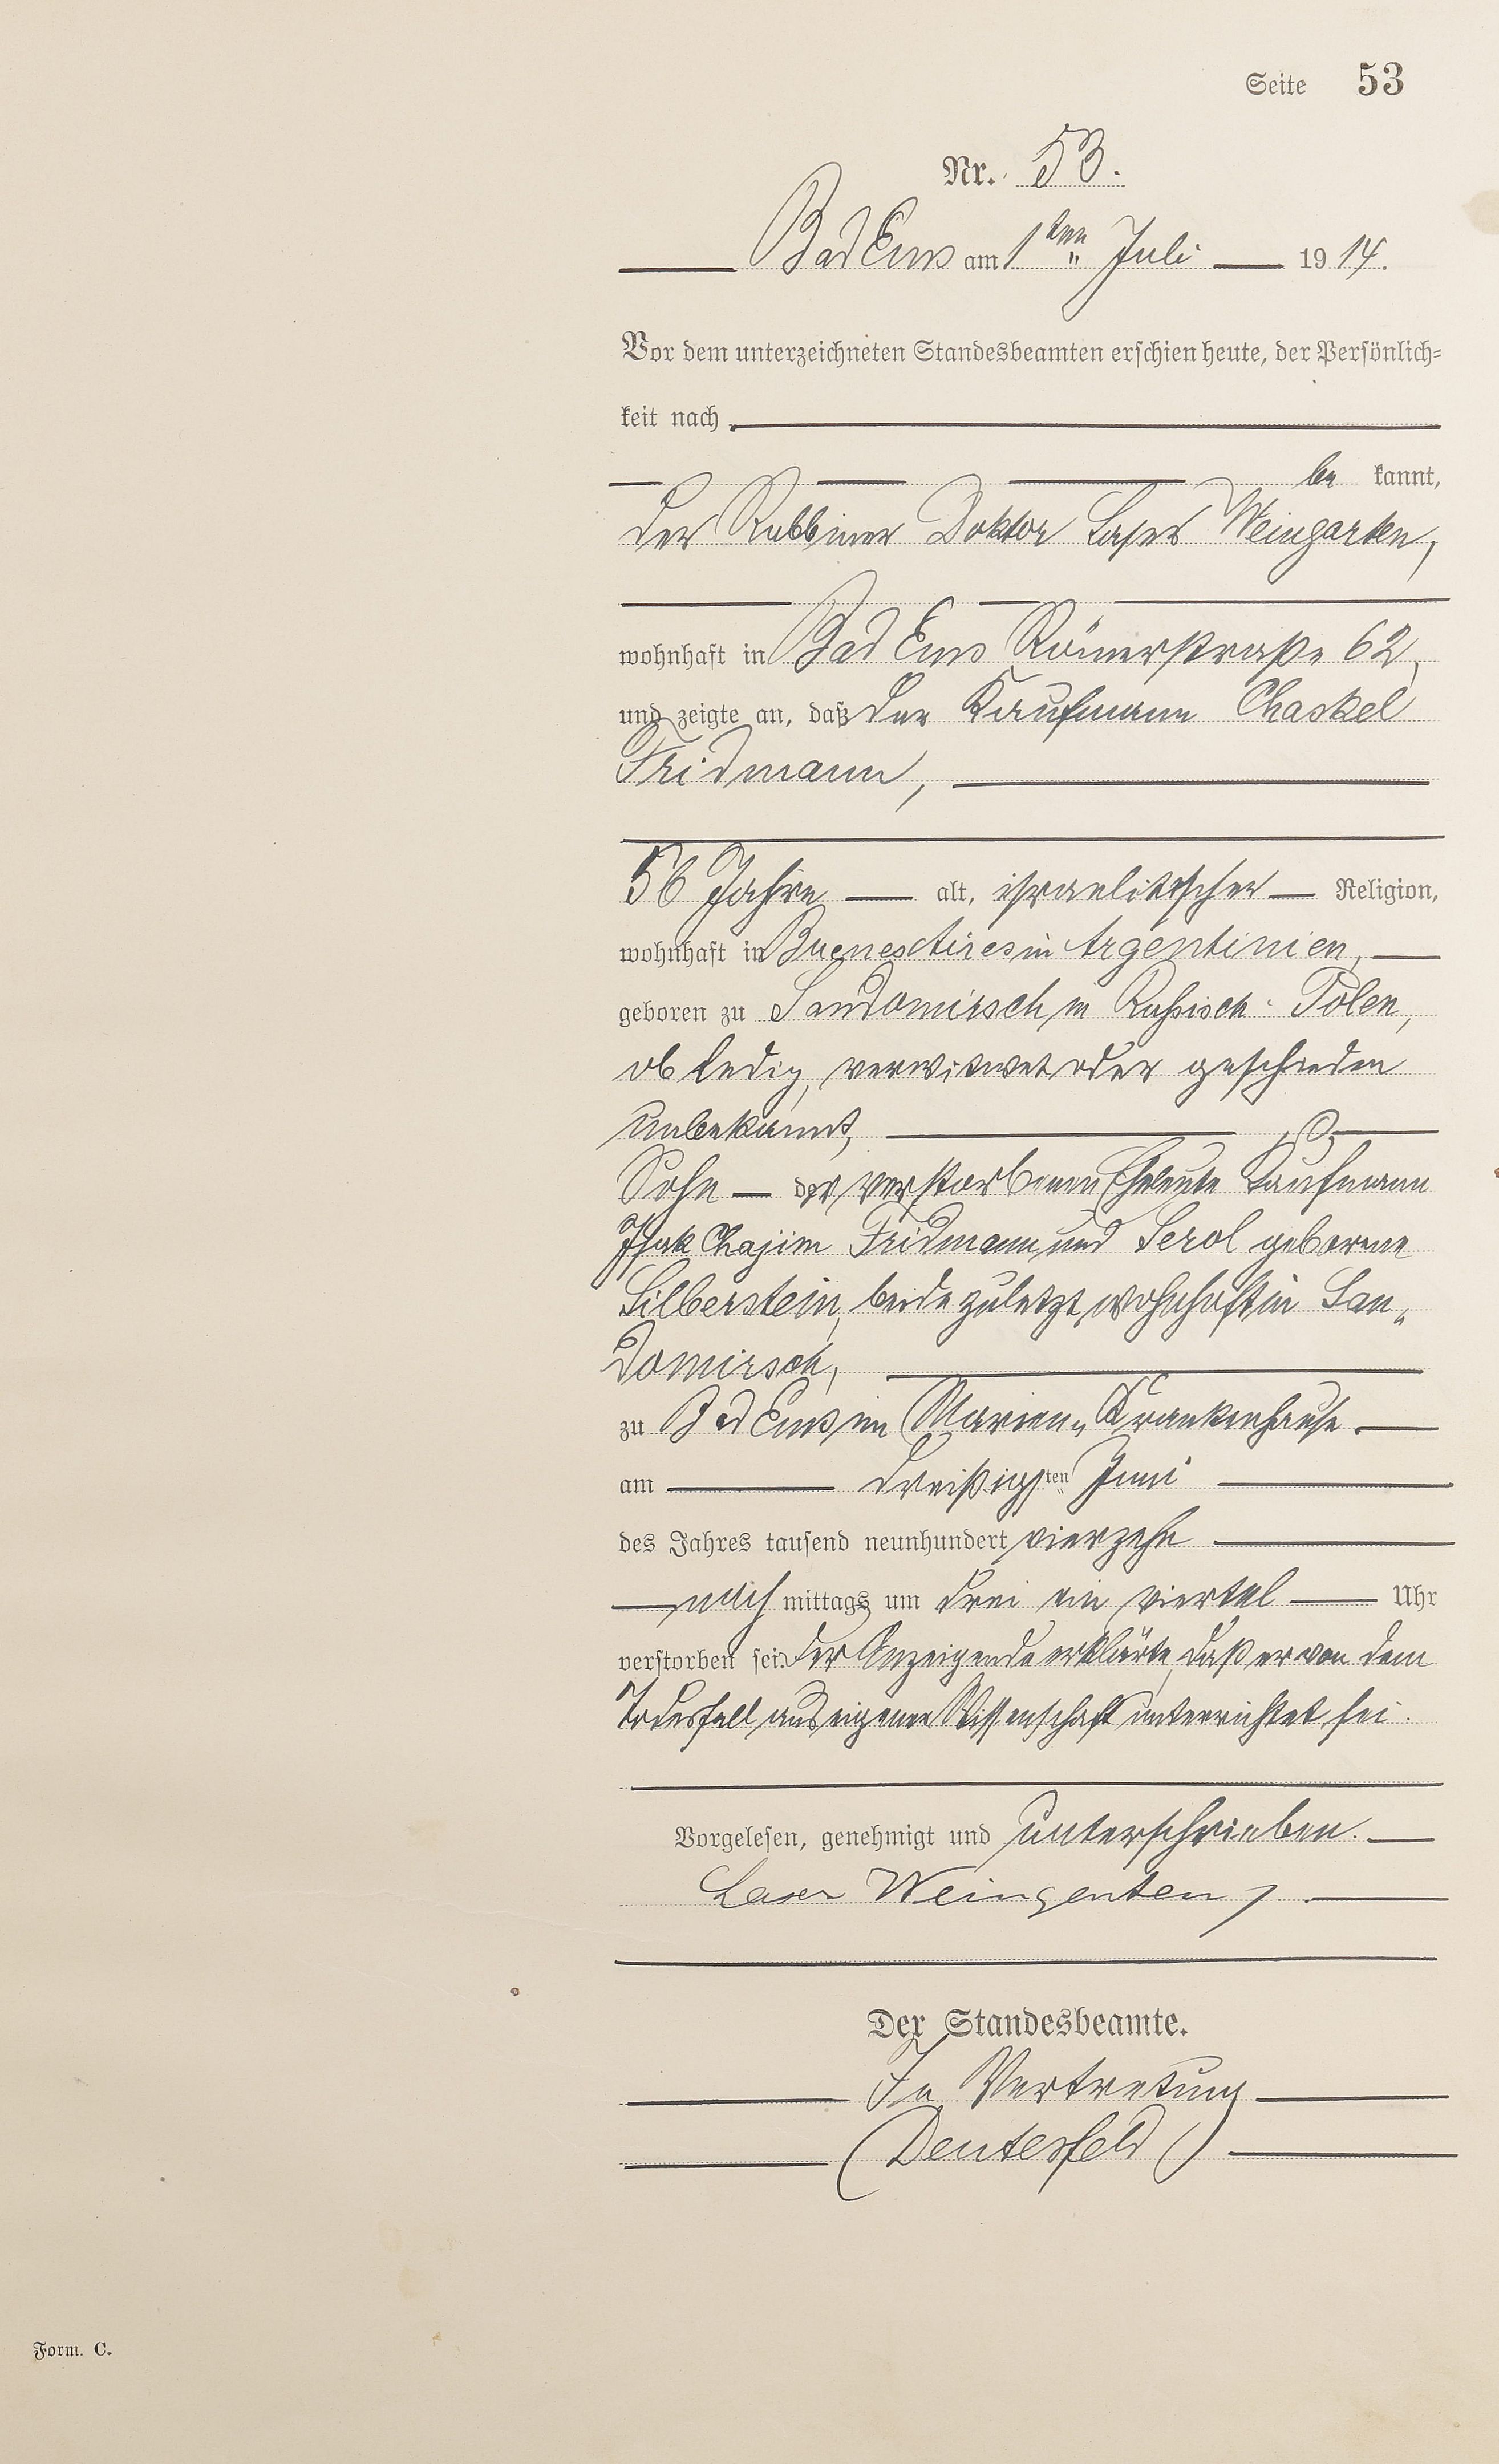 Seite 53
Nr. 53.
Bad Ems am 1ten Juli 1914.
Vor dem unterzeichneten Standesbeamten erschien heute, der Persönlich=
keit nach
be kannt,
der Rabbiner Doktor Laser Weingarten,
wohnhaft in Bad Ems Römerstraße 62,
und zeigte an, daß der Kaufmann Chaskel
Fridmann,
56 Jahre alt, israelitischer Religion,
wohnhaft in Buenes Aires in Argentinien,
geboren zu Sandomirsch in Russisch-Polen,
ob ledig, verwitwet oder geschieden
unbekannt,
Sohn der verstorbenen Eheleute Kaufmann
Isak Chajim Fridmann und Serol geborene
Silberstein, beide zuletzt wohnhaft in San„
domirsch,
zu Bad Ems im Marien„Krankenhause
am dreißigsten Juni
des Jahres tausend neunhundert vierzehn
nachmittags um drei ein viertel Uhr
verstorben sei. Der Anzeigende erklärte, daß er von dem
Todesfall aus eigener Wissenschaft unterrichtet sei.
Vorgelesen, genehmigt und unterschrieben.
Laser Weingarten
Der Standesbeamte.
In Vertretung
(Deutesfeld)
Form. C.